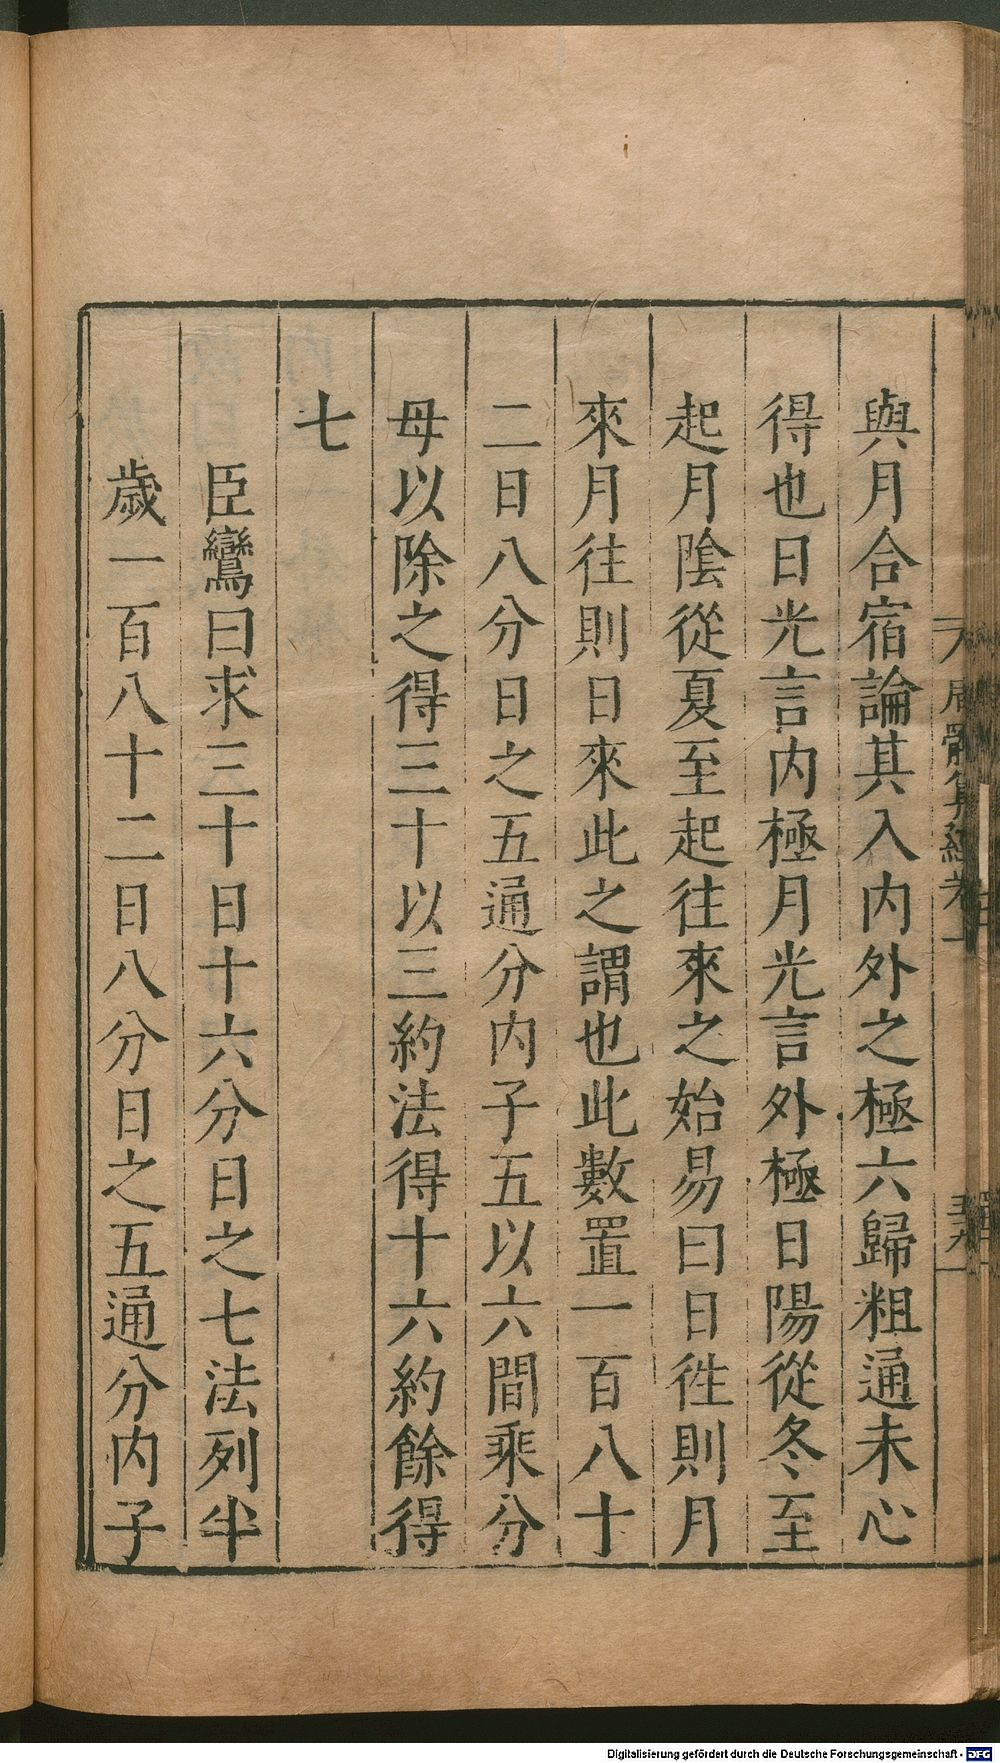 與月合宿論其入内外之極六歸粗通未心
得也日光言内極月光言外極日陽從冬至
起月陰從夏至起往來之始易曰日徃則月
來月往則日來此之謂也此數置一百八十
二日八分日之五通分内子五以六間乘分
母以除之得三十以三約法得十六約餘得
七
臣鸞曰求三十日十六分日之七法列半
歳一百八十二日八分日之五通分内子
Digitalisierung gefördert durch die Deutsche Forschungsgemeinschaft - DFG